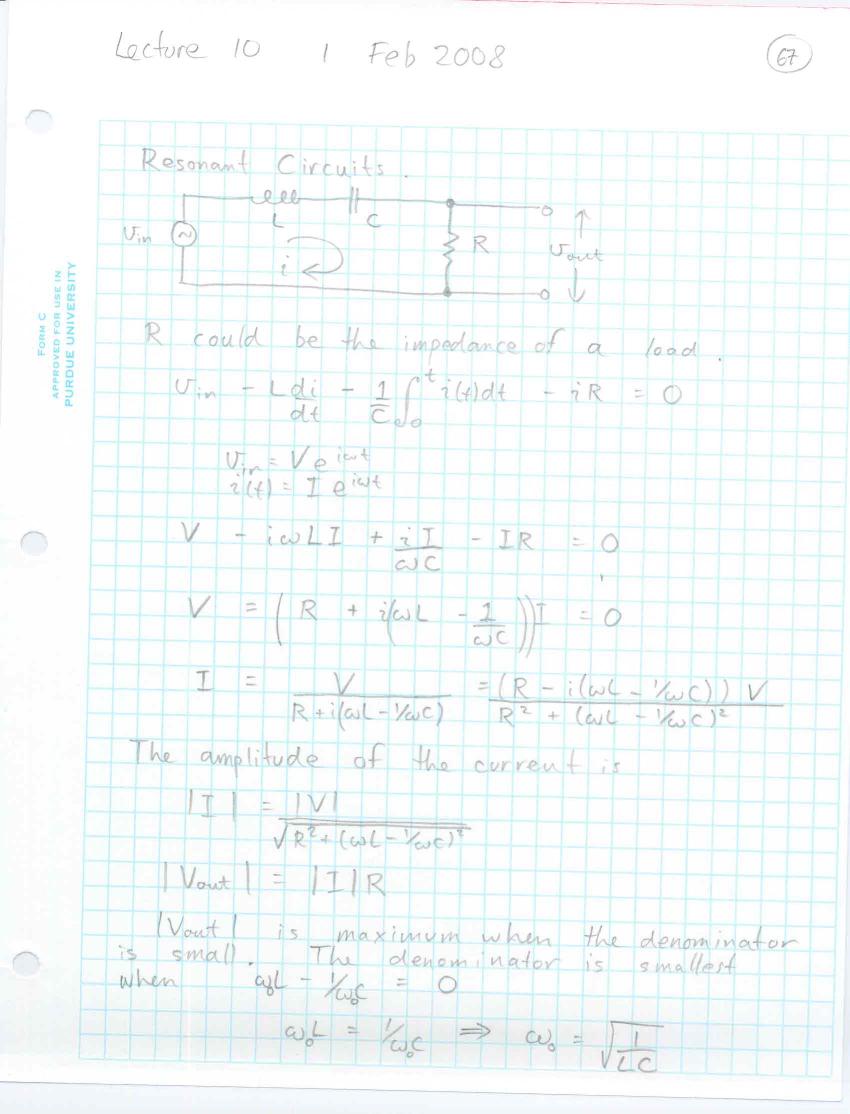 Lecture 10 1 Feb 2008 67
FORM C
APPROVED FOR USE IN
PURDUE UNIVERSITY
Resonant Circuits.
L C
Vin R Vout
i
R could be the impedance of a load.
Vin - L di/dt - 1/C ∫₀ᵗ i(t)dt - iR = 0
Vin = V e^{iωt}
i(t) = I e^{iωt}
V - iωLI + iI/ωC - IR = 0
V = (R + i(ωL - 1/ωC))I = 0
I = V/(R+i(ωL-1/ωC)) = (R - i(ωL - 1/ωC)) V/(R² + (ωL - 1/ωC)²)
The amplitude of the current is
|I| = |V|/√(R²+(ωL-1/ωC)²)
|Vout| = |I|R
|Vout| is maximum when the denominator
is small. The denominator is smallest
when ω₀L - 1/ω₀C = 0
ω₀L = 1/ω₀C ⇒ ω₀ = √(1/LC)